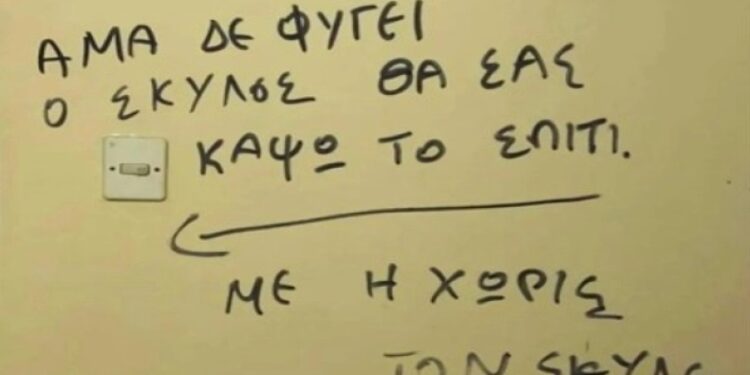 ΑΜΑ ΔΕ ΦΥΓΕΙ
Ο ΣΚΥΛΟΣ ΘΑ ΣΑΣ
ΚΑΨΩ ΤΟ ΣΠΙΤΙ.
ΜΕ Η ΧΩΡΙΣ
ΤΟΝ ΣΚΥΛΟ